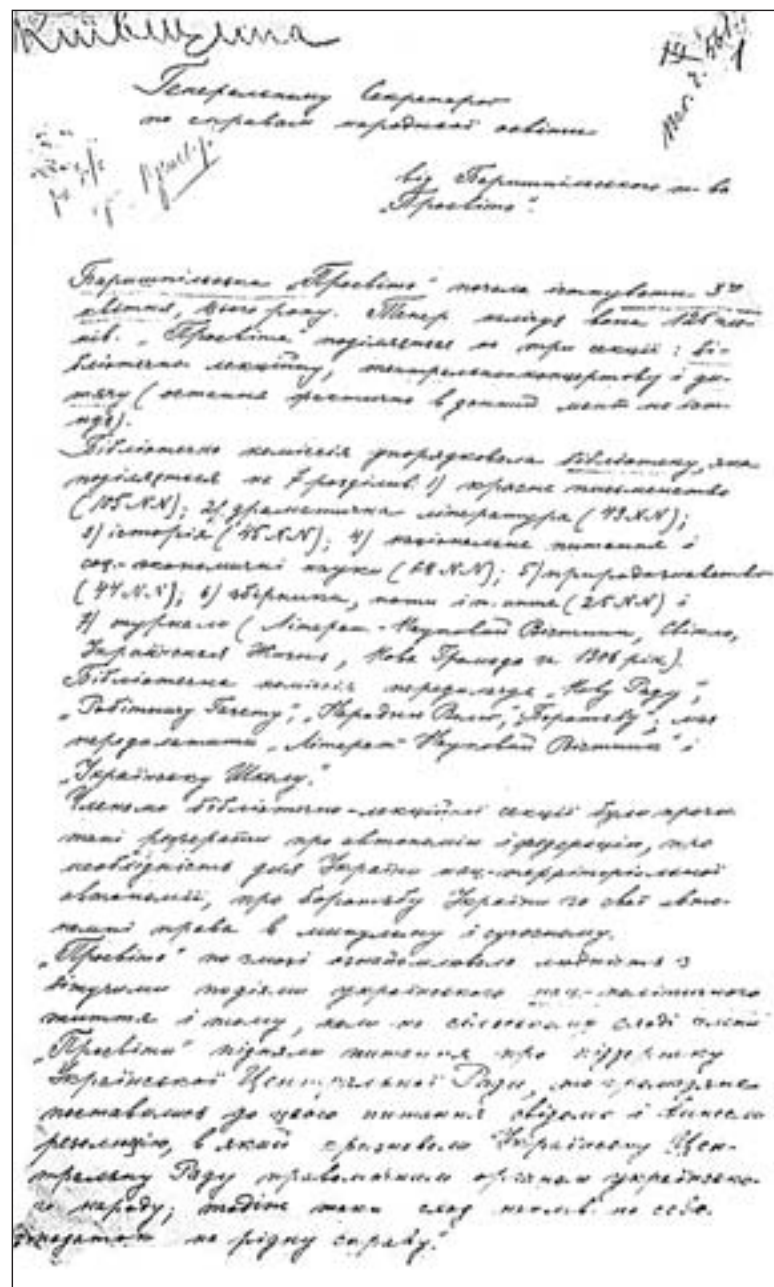 Київщина
Генеральному Секретарю
по справам народньої освіти
від Баришпільського т-ва
„Просвіта".
Баришпільська „Просвіта" почала істнувати 3го
квітня, цього року. Тепер налічує вона 126 чле-
нів. „Просвіта" поділяється на три секції: бі-
бліотечно лекційну, театрально-концертову і ди-
тячу (остання фактично в даний мент не істн-
нує).
Бібліотечна комісія упорядковала бібліотеку, яка
поділяється на 7 розділів: 1) красне письменство
(105 NN); 2) драматична література (43 NN);
3) історія (46 NN); 4) національне питання і
соц.-економичні науки (68 NN); 5) природознавство
(44 NN); 6) збірники, ноти і т. инше (25 NN) і
7) журнали (Літерат-Науковий Вістник, Світло,
Украинская Жизнь, Нова Громада за 1906 рік).
Бібліотечна комісія передплачує „Нову Раду",
„Робітничу Газету", „Народню Волю", „Боротьбу"; має
передплатити „Літерат-Науковий Вістник" і
„Українську Школу."
Членами бібліотечно-лекційної секції було прочи
тані реферати про автономію і федерацію, про
необхідність для України нац.-територіяльної
автономії, про боротьбу України за свої авто-
номні права в минулому і сучасному.
„Просвіта" по змозі ознайомлювала людність з
біжучими подіями українського нац.-політичного
життя і тому, коли на сільському сході члени
„Просвіти" підняли питання про піддержку
Української Центральної Ради, то громадяне
поставились до цього питання свідомо і винесли
резолюцію, в якій признавали Українську Цен-
тральну Раду правомочним органом українсько-
го народу; тодіж таки сход наклав на себе
„податок на рідну справу."